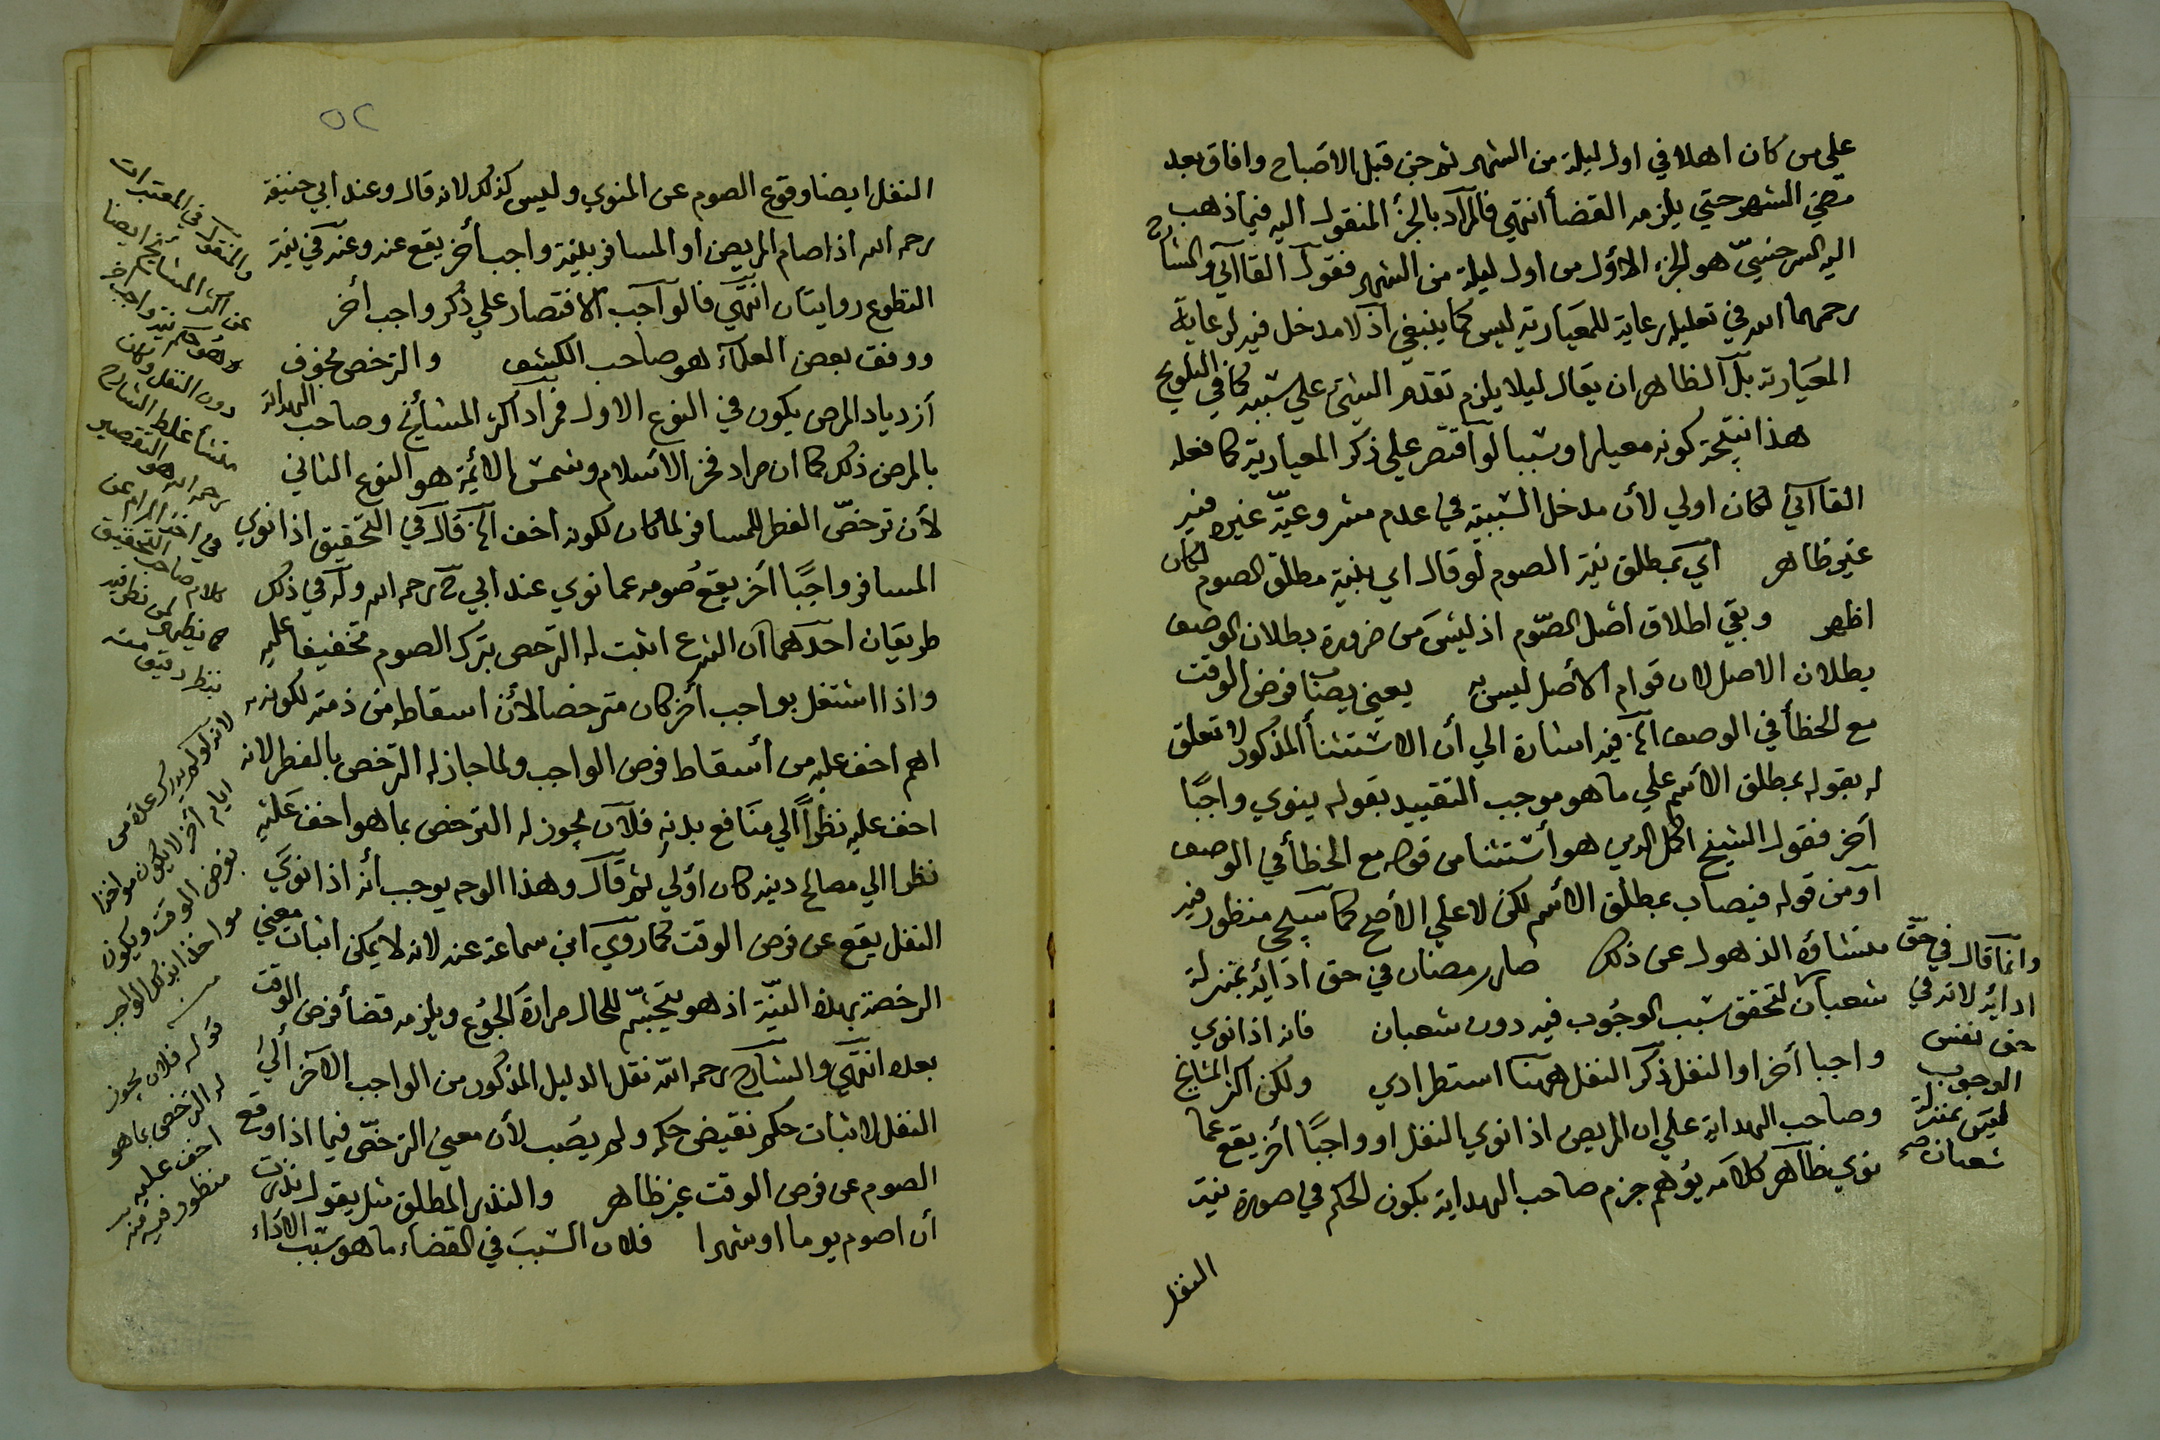 على من كان اهلا في اول ليلة من الشهر ثم جن قبل الاصباح وافاق بعد
مضي الشهر حتي يلزمه القضأ انتهي فالمرآد بالجزٔ المنقول اليه فيما ذهب
اليه السرخسيّ هو الجزء الاؤل من اول ليلة من الشهر فقول القاآني والشارح
رحمهما الله في تعليله رعاية للمعيارية ليس كما ينبغي اذ لا مدخل فيه لرعاية
المعيارية بل الظاهر ان يقال ليلا يلزم تقدم الشئ علي سببه كما في التلويح
هذا نتيجة كونه معيارا وسببا لو اقتصر علي ذكر المعيارية كما فعله
القاآني لكان اولي لأن مدخل السببية في عدم مشروعيّة غيره فيه
غير ظاهر اي بمطلق نية الصوم لو قال اي بنية مطلق الصوم لكان
اظهر وبقي اطلاق اصل الصّوم اذ ليس من ضرورة بطلان الوصف
بطلان الاصل لان قوام الأصل ليس به يعني يصاب فرض الوقت
مع الخطأ في الوصف الخ فيه اشارة الي أن الاستثنأ المذكور لا تعلق
له بقوله بمطلق الاسم علي ما هو موجب التقييد بقوله ينوي واجبًا
آخر فقول الشيخ اكمل الدين هو أستثنا من قوله مع الخطأ في الوصف
آو من قوله فيصاب بمطلق الاسم لكن لا علي الأصح كما سيجي منظور فيه
منشاؤه الذهول عن ذلك صار رمضان في حق ادآيه بمنزلة
شعبان لتحقق سبب الوجُوب فيه دون شعبان فانه اذا نوي
واجبا أخر او النفل ذكر النفل ههنا استطرادي ولكن اكثر المشايخ
وصاحب الهداية علي ان المريض اذا نوي النفل او واجبًا أخر يقع عما
نوي ظآهر كلامه يؤهم جزم صاحب الهداية بكون الحكم في صورة نية
النفل
وانما قال في حقّ
ادايه لانه في
حق نفس
الوجوب
ليس بمنزلة
شعبان صح
٥٢
النفل ايضا وقوع الصوم عن المنوي وليس كذلك لانه قال وعند ابي حنيفة
رحمه الله اذا صام المريض او المسافر بنية واجب أخر يقع عنه وعنه في نية
التطوع روايتان انتهي فالوآجب الاقتصار علي ذكر واجب أخر
ووفق بعض العلمآء هو صاحب الكشف والترخص بخوف
أزدياد المرض يكون في النوع الاول فمراد اكثر المشأيخ وصاحب الهداية
بالمرض ذلك كما ان مراد فخر الاسلام وشمس الائمة هو النوع الثاني
لأن ترخصّ الفطر للمسافر لما كان لكونه اخف الخ قال في التحقيق اذا نوي
المسافر واجبًا أخر يقع صُومه عما نوي عند ابي ح رحمه الله وله في ذلك
طريقان احدهما ان الشرع اثبت له الترخص بترك الصوم تخفيفا عليه
واذا اشتغل بواجب أخر كان مترخصا لأن اسقاطه من ذمته لكونه
اهم اخف عليه من أسقاط فرض الواجب ولما جاز له الترخص بالفطر لانه
اخف عليه نظراً الي منافع بدنه فلان يجوز له الترخص بما هو اخف عليه
نظرا الي مصالح دينه كان اؤلي ثم قال وهذا الوجه يوجب أنه اذا نوي
النفل يقع عن فرض الوقت كما روي ابن سماعة عنه لانه لا يمكن اثبات معني
الرخصة بهذه النيّة اذ هو يتجشّم للحال مرارة الجُوع ويلزمه قضأ فرض الوقت
بعده انتهي والشارح رحمه الله نقل الدليل المذكور من الواجب الآخر ألي
النفل لاثبات حكم نقيض حكمه ولم يصُب لأن معني الترخصّ فيما اذا وقع
الصوم عن فرض الوقت غير ظاهر والنذر المطلق مثل يقول نذرت
أن اصوم يوما او شهرا فلان السّببَ في القضاء ما هو سبب الاداء
والمنقول في المعتبرات
عن اكثر المشايخ ايضا
دون النفل
منشأ غلط الشارح
رحمه الله هو التقصير
كلام صاحب التحقيق
بنظر دقيق منه
لانه لو لم يدرك عدة من
ايام أخر لا يكون مواخذا
بفرض الوقت ويكون
مواخذا بذلك الواجب
منه
قوله فلان يجوز
له الترخص بما هو
اخف عليه
منظور فيه منه